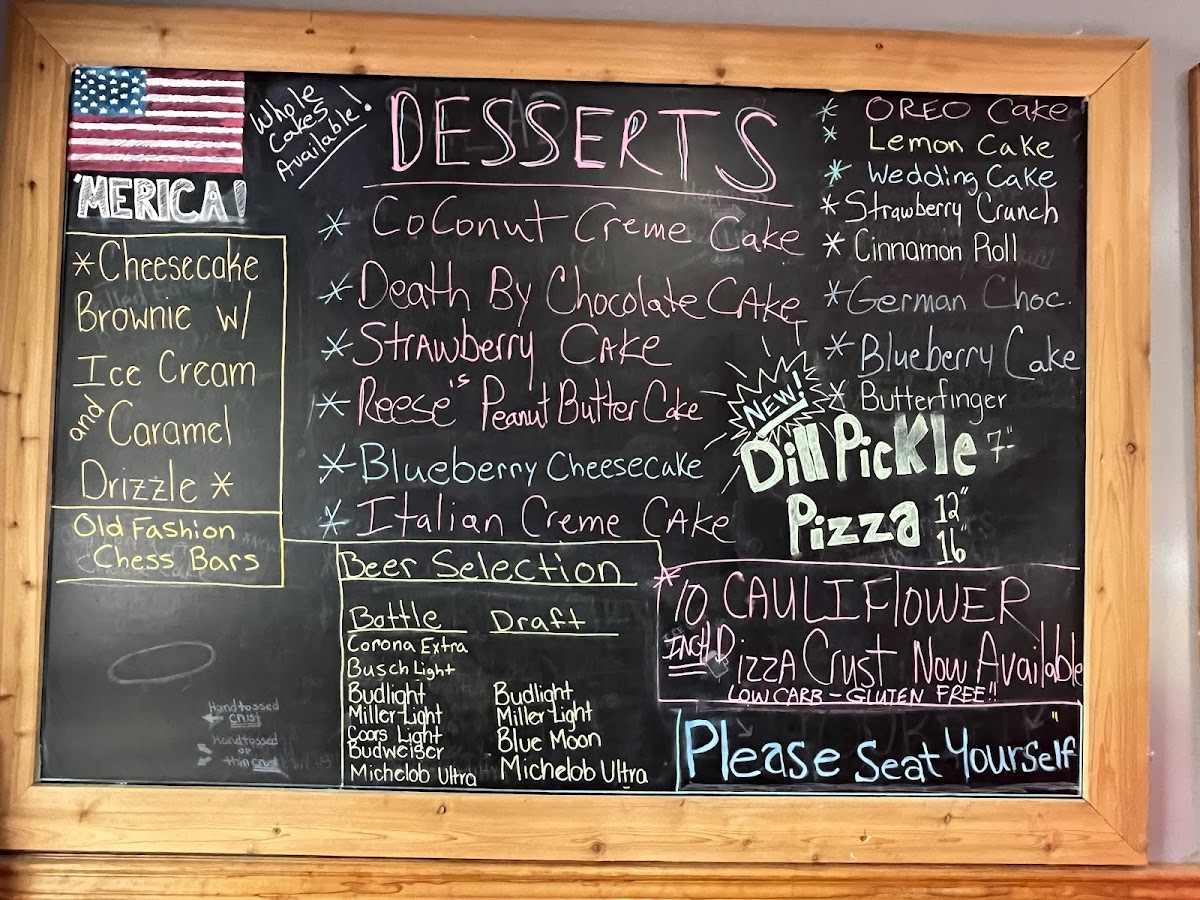 'MERICA!
Whole
Cakes
Available!
DESSERTS
* Coconut Creme Cake
* Death By Chocolate CAke
* Strawberry CAke
* Reese's Peanut Butter Cake
* Blueberry Cheesecake
* Italian Creme CAke
* OREO Cake
* Lemon Cake
* Wedding Cake
* Strawberry Crunch
* Cinnamon Roll
* German Choc.
* Blueberry Cake
* Butterfinger
*Cheesecake
Brownie w/
Ice Cream
and Caramel
Drizzle *
Old Fashion
Chess Bars
NEW!
Dill Pickle 7"
Pizza 12"
16"
Beer Selection
Bottle Draft
Corona Extra
Busch Light
Budlight Budlight
Miller Light Miller Light
Coors Light Blue Moon
Budweiser
Michelob Ultra Michelob Ultra
*10 CAULIFLOWER
INCH PizzA Crust Now Available
LOW CARB - GLUTEN FREE!!
Please Seat Yourself
Hand tossed
crust
Hand tossed
or
thin crust